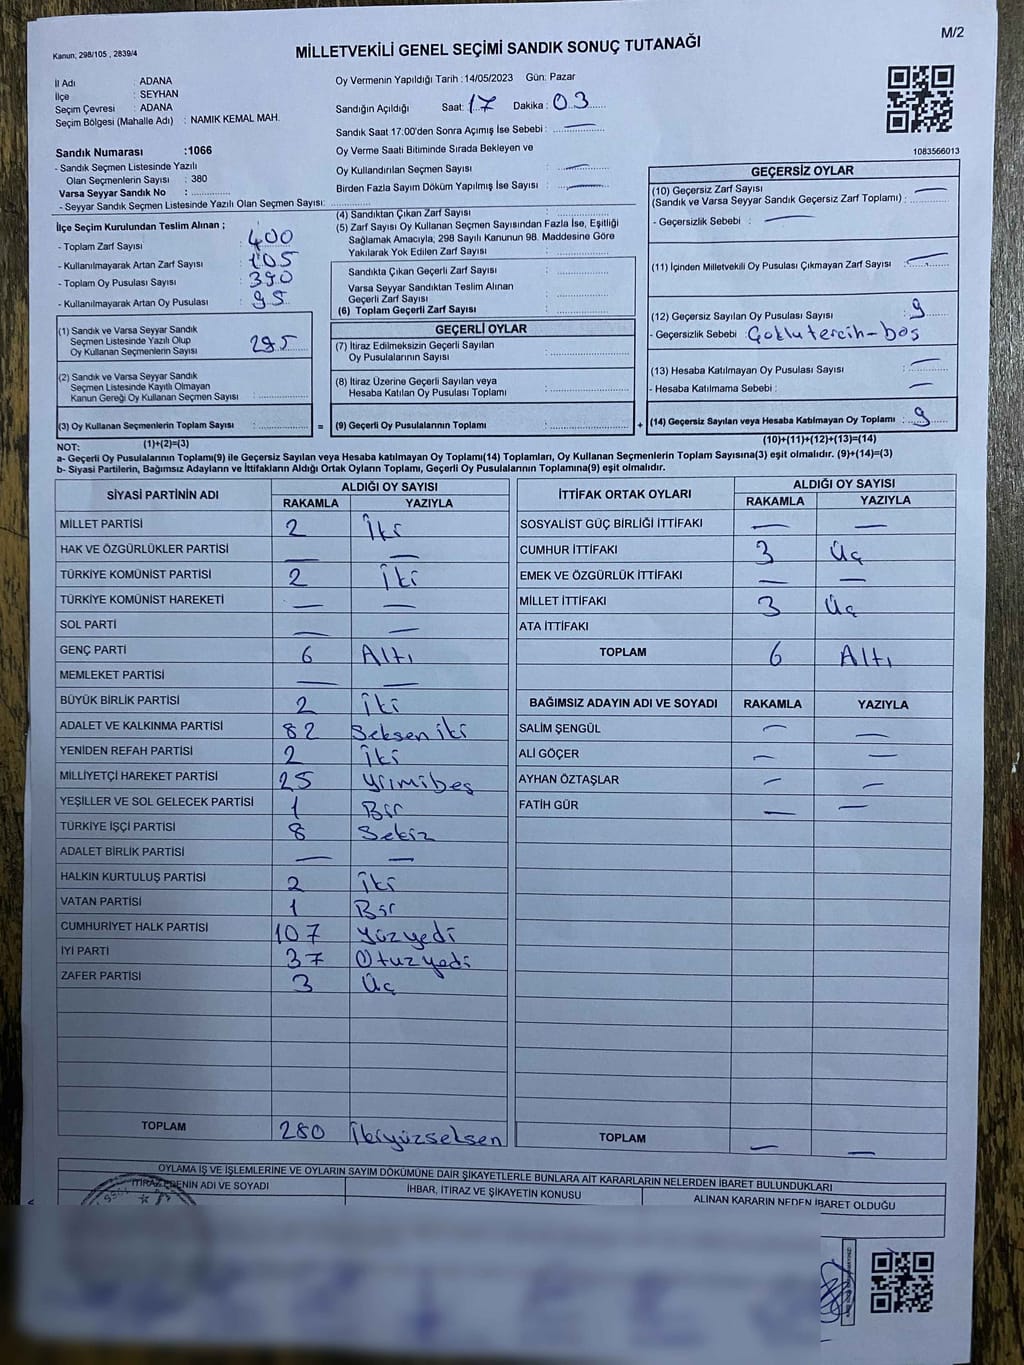 M/2
Kanun, 298/105 , 2839/4
MİLLETVEKİLİ GENEL SEÇİMİ SANDIK SONUÇ TUTANAĞI
İl Adı : ADANA
İlçe : SEYHAN
Seçim Çevresi : ADANA
Seçim Bölgesi (Mahalle Adı) : NAMIK KEMAL MAH.
Oy Vermenin Yapıldığı Tarih :14/05/2023 Gün: Pazar
Sandığın Açıldığı Saat: 17 Dakika : 03
Sandık Saat 17:00'den Sonra Açımış İse Sebebi : —
Oy Verme Saati Bitiminde Sırada Bekleyen ve
Oy Kullandırılan Seçmen Sayısı : —
Birden Fazla Sayım Döküm Yapılmış İse Sayısı : —
Sandık Numarası :1066
- Sandık Seçmen Listesinde Yazılı
Olan Seçmenlerin Sayısı : 380
Varsa Seyyar Sandık No : ..............
- Seyyar Sandık Seçmen Listesinde Yazılı Olan Seçmen Sayısı: ..............
İlçe Seçim Kurulundan Teslim Alınan ;
- Toplam Zarf Sayısı : 400
- Kullanılmayarak Artan Zarf Sayısı : 105
- Toplam Oy Pusulası Sayısı : 390
- Kullanılmayarak Artan Oy Pusulası : 95
(1) Sandık ve Varsa Seyyar Sandık
Seçmen Listesinde Yazılı Olup
Oy Kullanan Seçmenlerin Sayısı : 295
(2) Sandık ve Varsa Seyyar Sandık
Seçmen Listesinde Kayıtlı Olmayan
Kanun Gereği Oy Kullanan Seçmen Sayısı : ..............
(3) Oy Kullanan Seçmenlerin Toplam Sayısı : ..............
(1)+(2)=(3)
(4) Sandıktan Çıkan Zarf Sayısı : ..............
(5) Zarf Sayısı Oy Kullanan Seçmen Sayısından Fazla İse, Eşitliği
Sağlamak Amacıyla, 298 Sayılı Kanunun 98. Maddesine Göre
Yakılarak Yok Edilen Zarf Sayısı : ..............
Sandıkta Çıkan Geçerli Zarf Sayısı : ..............
Varsa Seyyar Sandıktan Teslim Alınan
Geçerli Zarf Sayısı : ..............
(6) Toplam Geçerli Zarf Sayısı : ..............
GEÇERLİ OYLAR
(7) İtiraz Edilmeksizin Geçerli Sayılan
Oy Pusulalarının Sayısı : ..............
(8) İtiraz Üzerine Geçerli Sayılan veya
Hesaba Katılan Oy Pusulası Toplamı : ..............
= (9) Geçerli Oy Pusulalarının Toplamı : .............. +
1083566013
GEÇERSİZ OYLAR
(10) Geçersiz Zarf Sayısı —
(Sandık ve Varsa Seyyar Sandık Geçersiz Zarf Toplamı) : ........
- Geçersizlik Sebebi : —
(11) İçinden Milletvekili Oy Pusulası Çıkmayan Zarf Sayısı : —
(12) Geçersiz Sayılan Oy Pusulası Sayısı : 9
- Geçersizlik Sebebi : Çoklu tercih-boş
(13) Hesaba Katılmayan Oy Pusulası Sayısı : —
- Hesaba Katılmama Sebebi : —
(14) Geçersiz Sayılan veya Hesaba Katılmayan Oy Toplamı : 9
(10)+(11)+(12)+(13)=(14)
NOT:
a- Geçerli Oy Pusulalarının Toplamı(9) ile Geçersiz Sayılan veya Hesaba Katılmayan Oy Toplamı(14) Toplamları, Oy Kullanan Seçmenlerin Toplam Sayısına(3) eşit olmalıdır. (9)+(14)=(3)
b- Siyasi Partilerin, Bağımsız Adayların ve İttifakların Aldığı Ortak Oyların Toplamı, Geçerli Oy Pusulalarının Toplamına(9) eşit olmalıdır.
SİYASİ PARTİNİN ADI ALDIĞI OY SAYISI
RAKAMLA YAZIYLA
MİLLET PARTİSİ 2 İki
HAK VE ÖZGÜRLÜKLER PARTİSİ — —
TÜRKİYE KOMÜNİST PARTİSİ 2 İki
TÜRKİYE KOMÜNİST HAREKETİ — —
SOL PARTİ — —
GENÇ PARTİ 6 Altı
MEMLEKET PARTİSİ — —
BÜYÜK BİRLİK PARTİSİ 2 İki
ADALET VE KALKINMA PARTİSİ 82 Seksen iki
YENİDEN REFAH PARTİSİ 2 İki
MİLLİYETÇİ HAREKET PARTİSİ 25 yrimibeş
YEŞİLLER VE SOL GELECEK PARTİSİ 1 Bir
TÜRKİYE İŞÇİ PARTİSİ 8 Sekiz
ADALET BİRLİK PARTİSİ — —
HALKIN KURTULUŞ PARTİSİ 2 İki
VATAN PARTİSİ 1 Bir
CUMHURİYET HALK PARTİSİ 107 yüzyedi
İYİ PARTİ 37 Otuzyedi
ZAFER PARTİSİ 3 Üç
TOPLAM 280 İkiyüzseksen
İTTİFAK ORTAK OYLARI ALDIĞI OY SAYISI
RAKAMLA YAZIYLA
SOSYALİST GÜÇ BİRLİĞİ İTTİFAKI — —
CUMHUR İTTİFAKI 3 Üç
EMEK VE ÖZGÜRLÜK İTTİFAKI — —
MİLLET İTTİFAKI 3 Üç
ATA İTTİFAKI
TOPLAM 6 Altı
BAĞIMSIZ ADAYIN ADI VE SOYADI RAKAMLA YAZIYLA
SALİM ŞENGÜL — —
ALİ GÖÇER — —
AYHAN ÖZTAŞLAR — —
FATİH GÜR — —
TOPLAM — —
OYLAMA İŞ VE İŞLEMLERİNE VE OYLARIN SAYIM DÖKÜMÜNE DAİR ŞİKAYETLERLE BUNLARA AİT KARARLARIN NELERDEN İBARET BULUNDUKLARI
İTİRAZ EDENİN ADI VE SOYADI
İHBAR, İTİRAZ VE ŞİKAYETİN KONUSU
ALINAN KARARIN NEDEN İBARET OLDUĞU